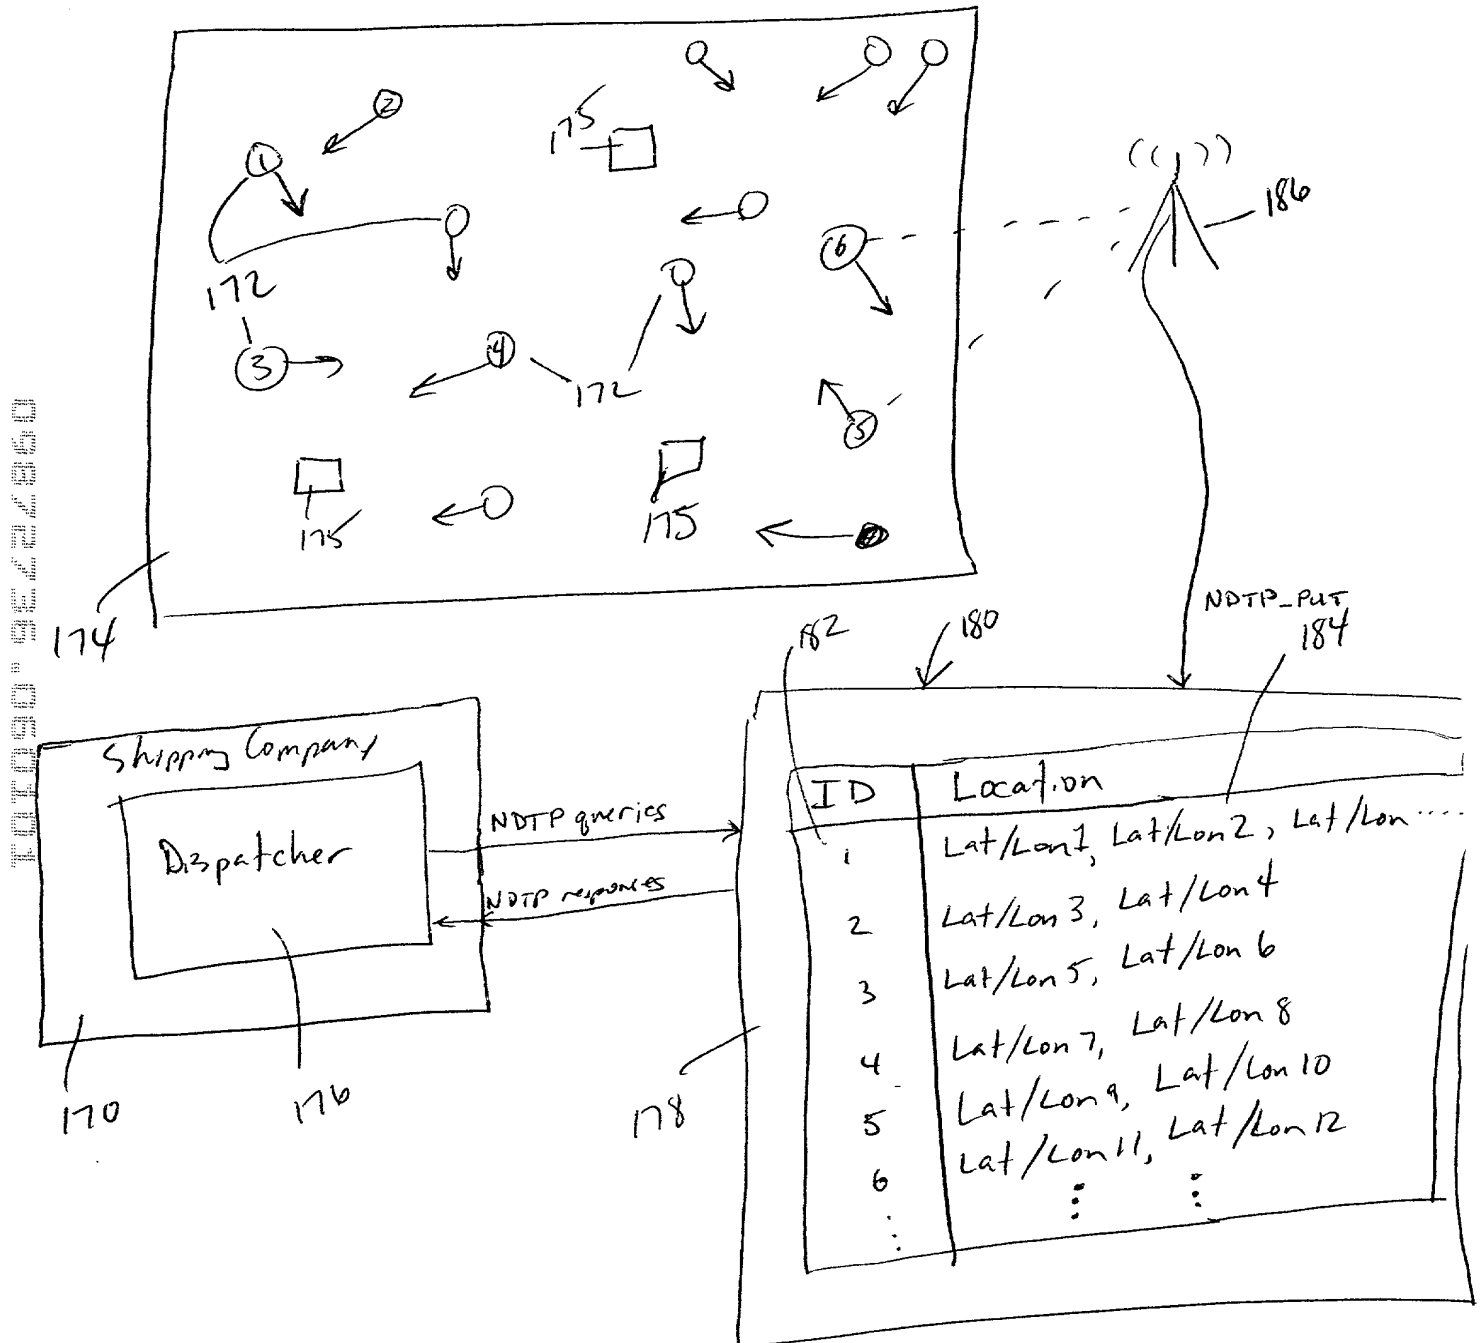 2
175
1
186
6
172
3
4
172
5
175
175
174
NDTP_PUT
182
180
184
Shipping Company
Dispatcher
NDTP queries
NDTP responses
ID Location
1 Lat/Lon 1, Lat/Lon 2, Lat/Lon ....
2 Lat/Lon 3, Lat/Lon 4
3 Lat/Lon 5, Lat/Lon 6
4 Lat/Lon 7, Lat/Lon 8
5 Lat/Lon 9, Lat/Lon 10
6 Lat/Lon 11, Lat/Lon 12
170
176
178
09872736.060101